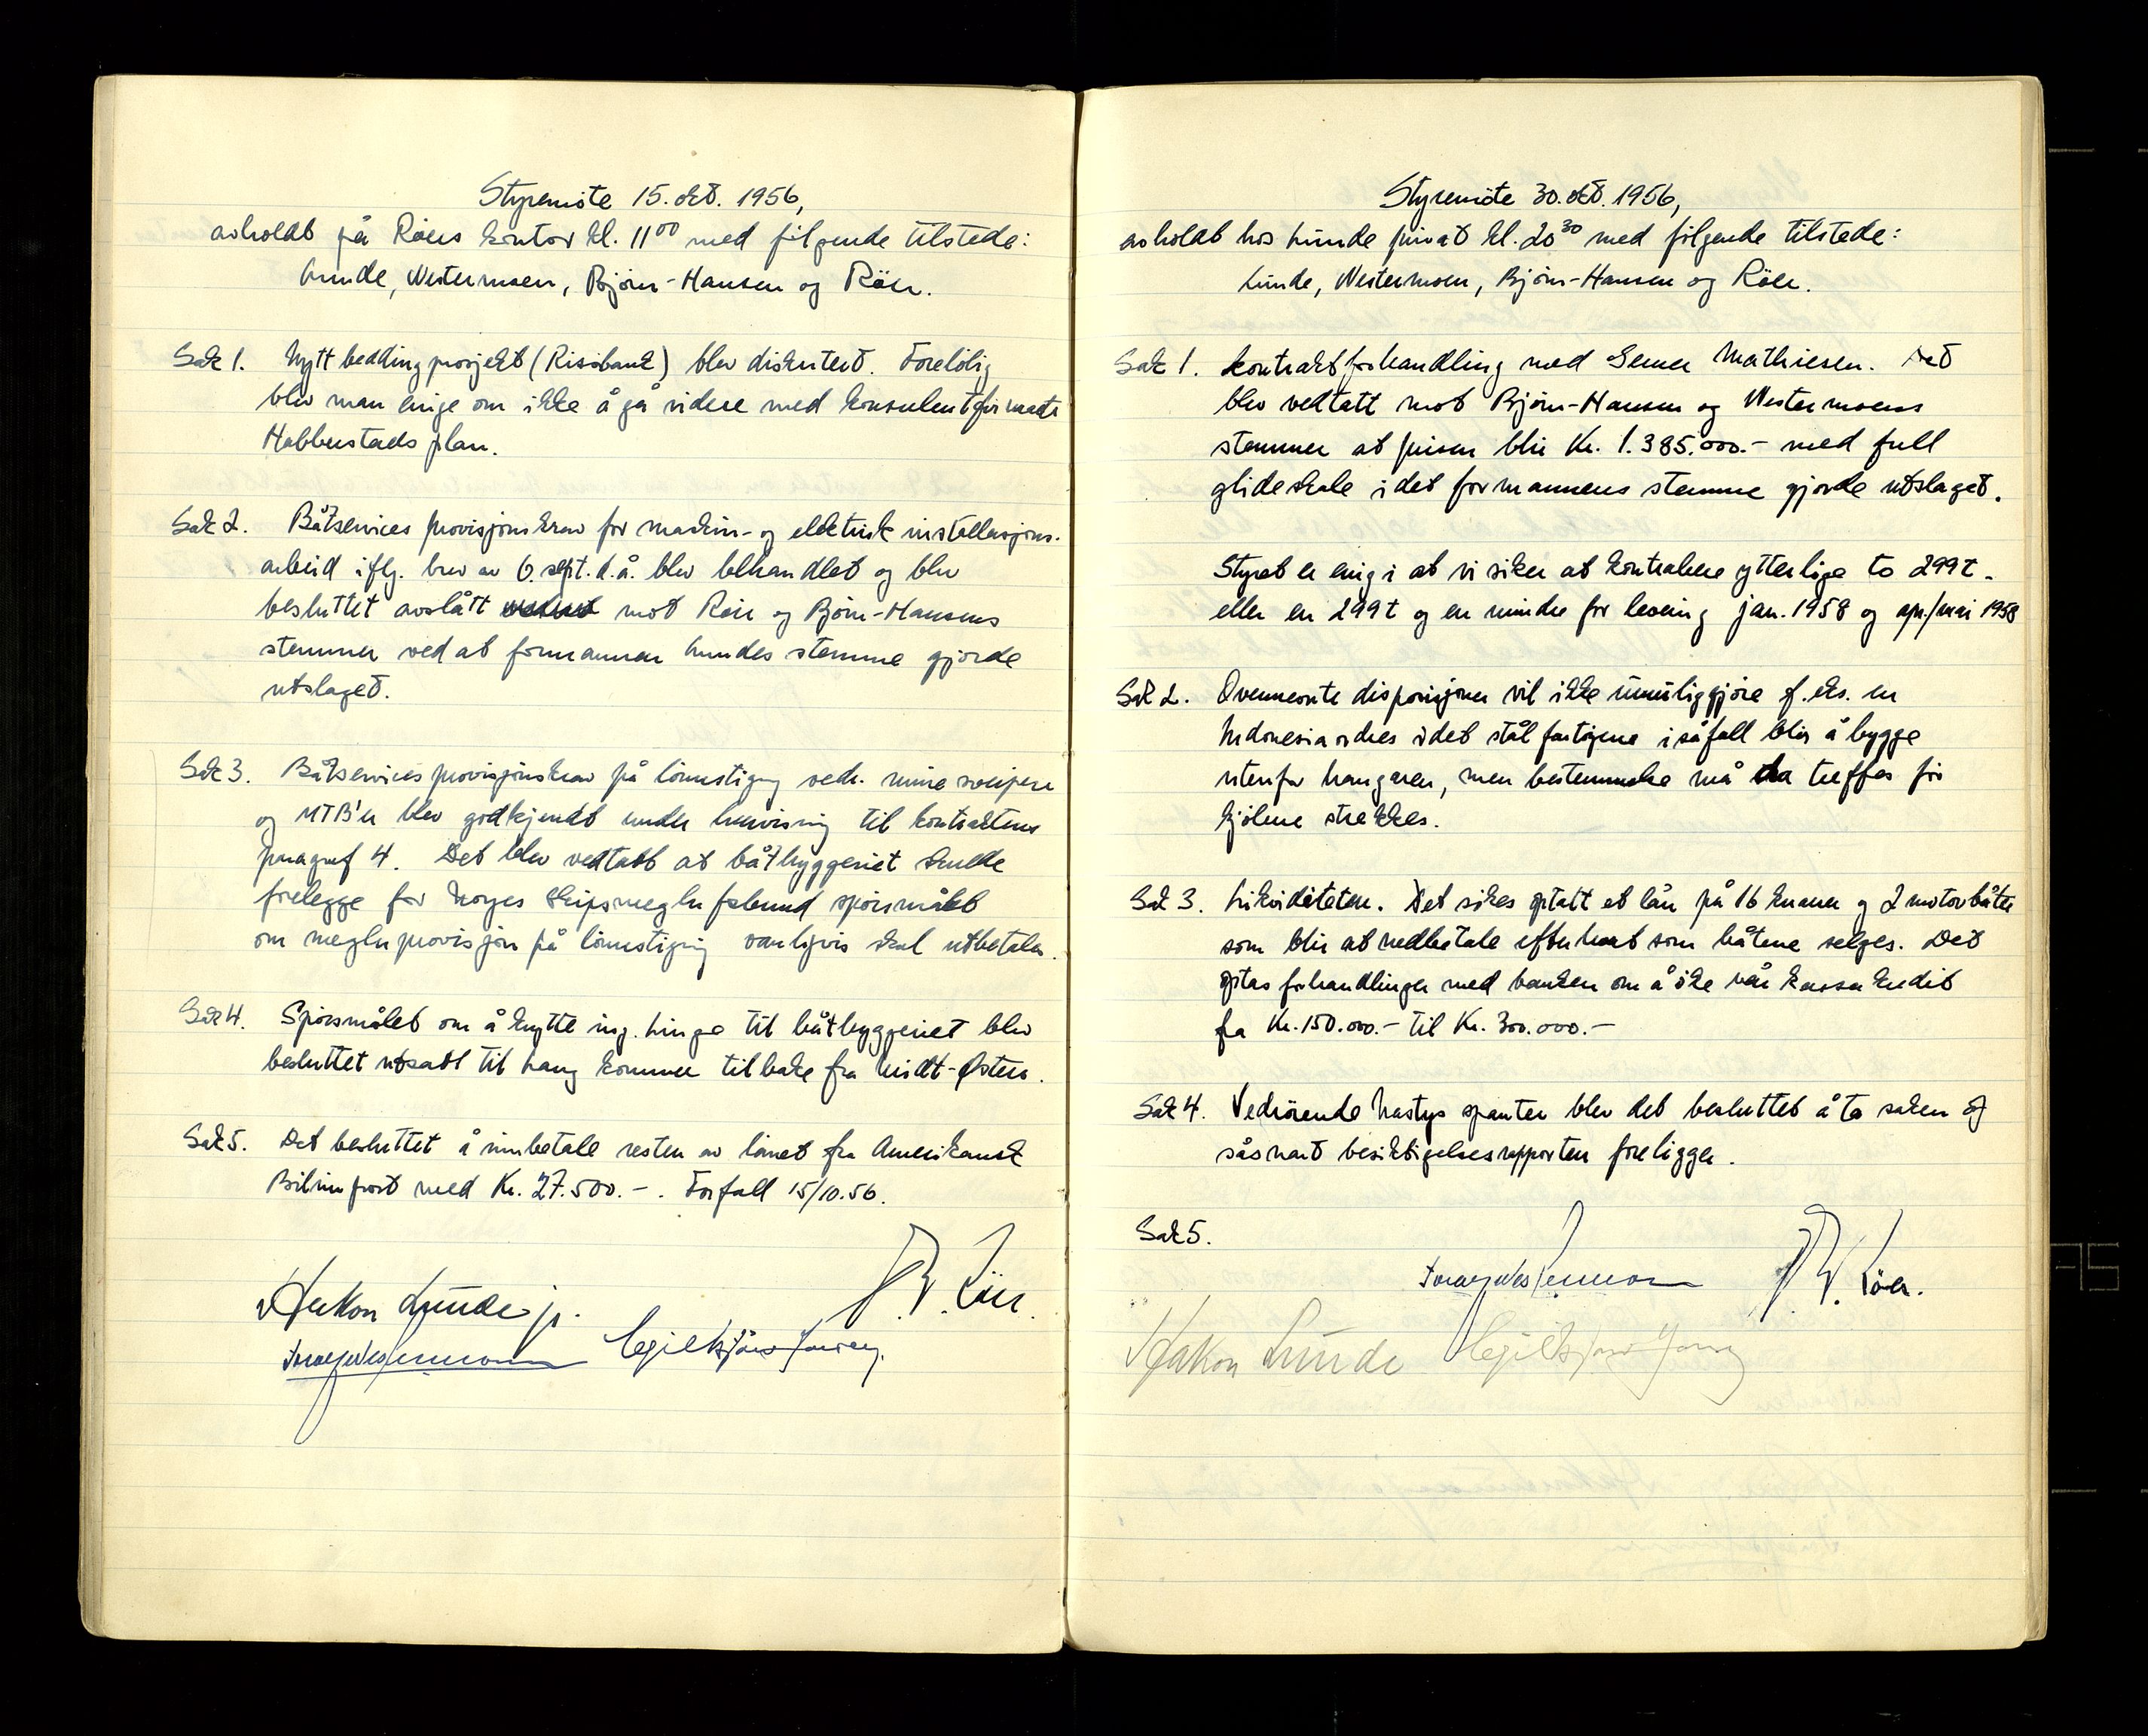 Styremöte 15. okt. 1956,
avholdt på Röers kontor kl. 11⁰⁰ med følgende tilstede:
Lunde, Westermoen, Bjørn-Hansen og Röer.
Sak 1. Nytt beddingprosjekt (Risøbank) blev diskutert. Foreløbig
blev man enige om ikke å gå videre med konsulentfirmaets
Habberstads plan.
Sak 2. Båtservices provisjonskrav for maskin- og elektrisk installasjons-
arbeid iflg. brev av 6. sept. d.å. blev behandlet og blev
besluttet avslått mot Röer og Bjørn-Hansens
stemmer ved at formannen Lundes stemme gjorde
utslaget.
Sak 3. Båtservices provisjonskrav på lönnstigning vedr. mine sveipere
og MTB'er blev godkjendt under henvisning til kontraktens
paragraf 4. Det blev vedtatt at båtbyggeriet skulde
forelegge for Norges Skipsmegler forbund spörsmålet
om meglerprovisjon på lönnstigning vanligvis skal utbetales.
Sak 4. Spörsmålet om å knytte ing. Linge til båtbyggeriet blev
besluttet utsatt til hang kommer tilbake fra Midt-Østen.
Sak 5. Det besluttet å innbetale resten av lånet fra Amerikansk
Bilimport med Kr. 27.500.-. Forfall 15/10.56.
Haakon Lunde jr.
Röer.
Styremöte 30. okt. 1956,
avholdt hos Lunde privat kl. 20³⁰ med følgende tilstede:
Lunde, Westermoen, Bjørn-Hansen og Röer.
Sak 1. Kontraktforhandling med Gerner Mathiesen. Det
blev vedtatt mot Bjørn-Hansen og Westermoens
stemmer at prisen blir Kr. 1.385.000.- med full
glideskala idet formannens stemme gjorde utslaget.
Styret er enig i at vi söker at kontrahere ytterlige to 299t.
eller en 299t og en mindre for levering jan. 1958 og apr./mai 1958
Sak 2. Ovennevnte disposisjoner vil ikke umuliggjöre f. eks. en
Indonesia ordres idet stål fartöyene i såfall blir å bygge
utenfor hangaren, men bestemmelse må da treffes för
kjölene strekkes.
Sak 3. Likviditeten. Det sökes optatt et lån på 16 knarrer og 2 motorbåter
som blir at nedbetale efterhvert som båtene selges. Det
optas forhandlinger med banken om å öke vår kassakredit
fra Kr. 150.000.- til Kr. 300.000.-
Sak 4. Vedrörende Nastys spanter blev det besluttet å ta saken op
såsnart besiktigelsesrapporten foreligger.
Sak 5.
Röer.
Haakon Lunde